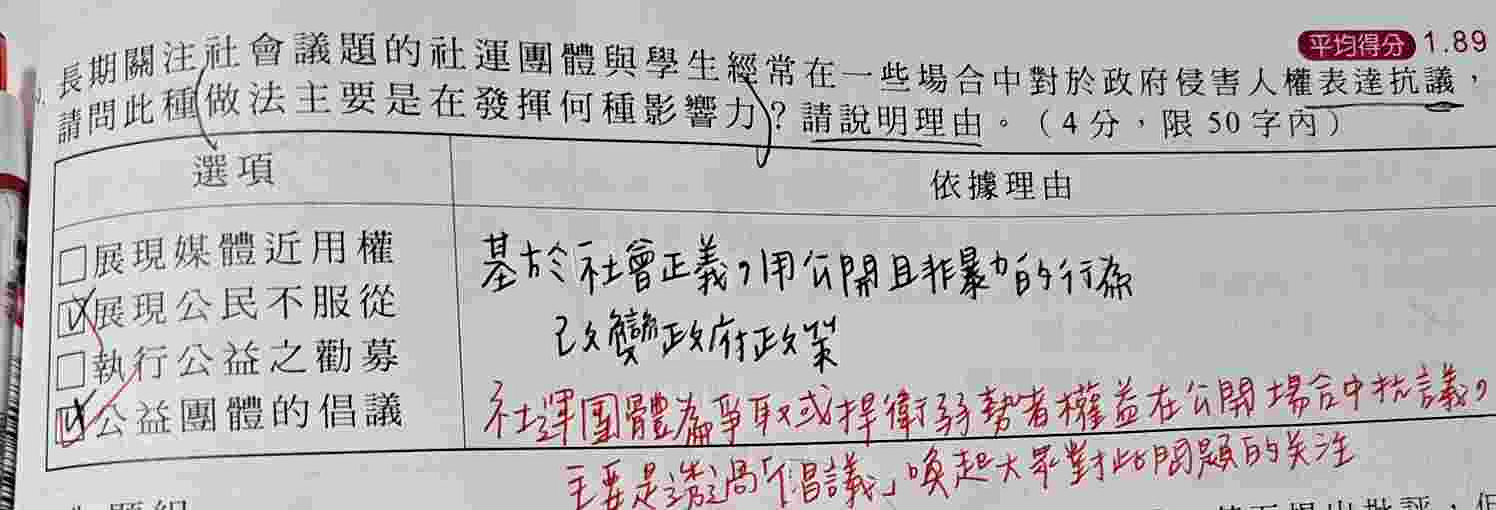 平均得分 1.89
長期關注社會議題的社運團體與學生經常在一些場合中對於政府侵害人權表達抗議，
請問此種做法主要是在發揮何種影響力？請說明理由。（4分，限50字內）
選項
依據理由
□展現媒體近用權
□展現公民不服從
□執行公益之勸募
□公益團體的倡議
基於社會正義，用公開且非暴力的行為
改變政府政策
社運團體為爭取或捍衛弱勢者權益在公開場合中抗議，
主要是透過「倡議」喚起大眾對此問題的关注